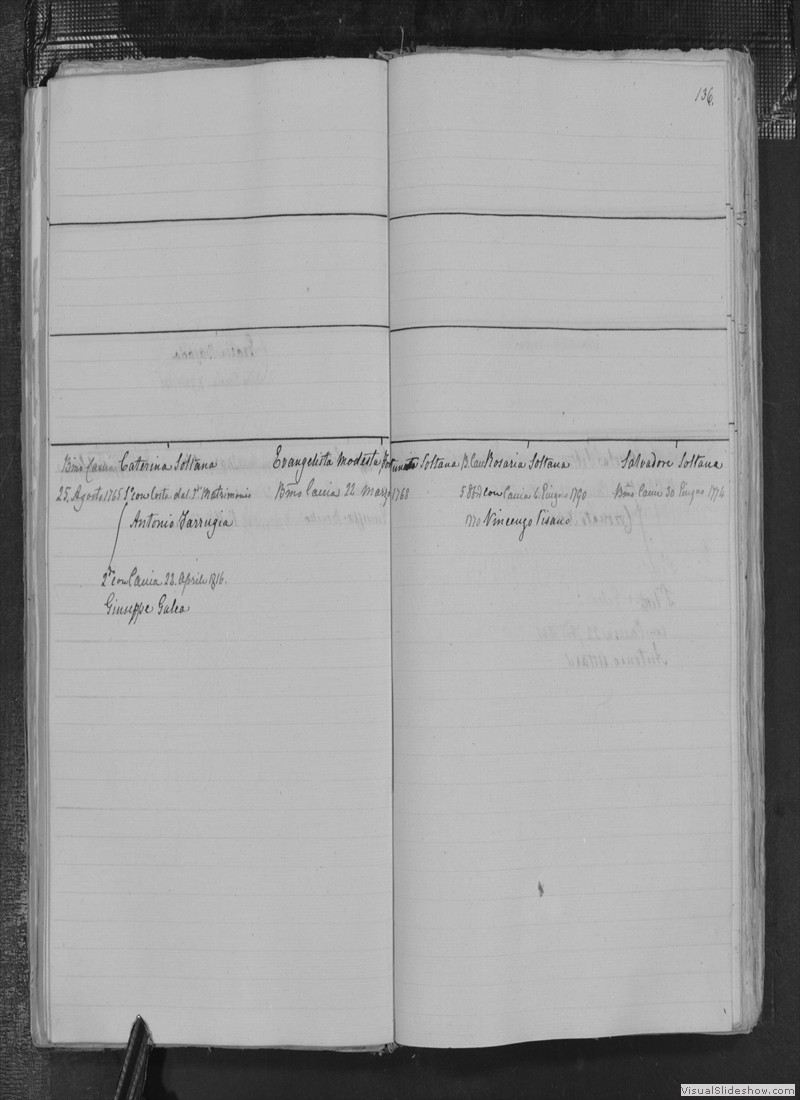 136.
Bmo Cauia Caterina Soltana
25. Agosto 1765 1° con Coste del 1° Matrimonio
Antonio Farrugia
2° con Cauia 22. Aprile 1816.
Giuseppe Galea
Evangelista Modesta Fortunata Soltana
Bmo Cauia 22 Marzo 1768
B. Cau Rosaria Soltana
con Cauia 6 Giugno 1790
1770 Vincenzo Pisano
Salvadore Soltana
Bmo Cauia 30 Giugno 1774
VisualSlideshow.com